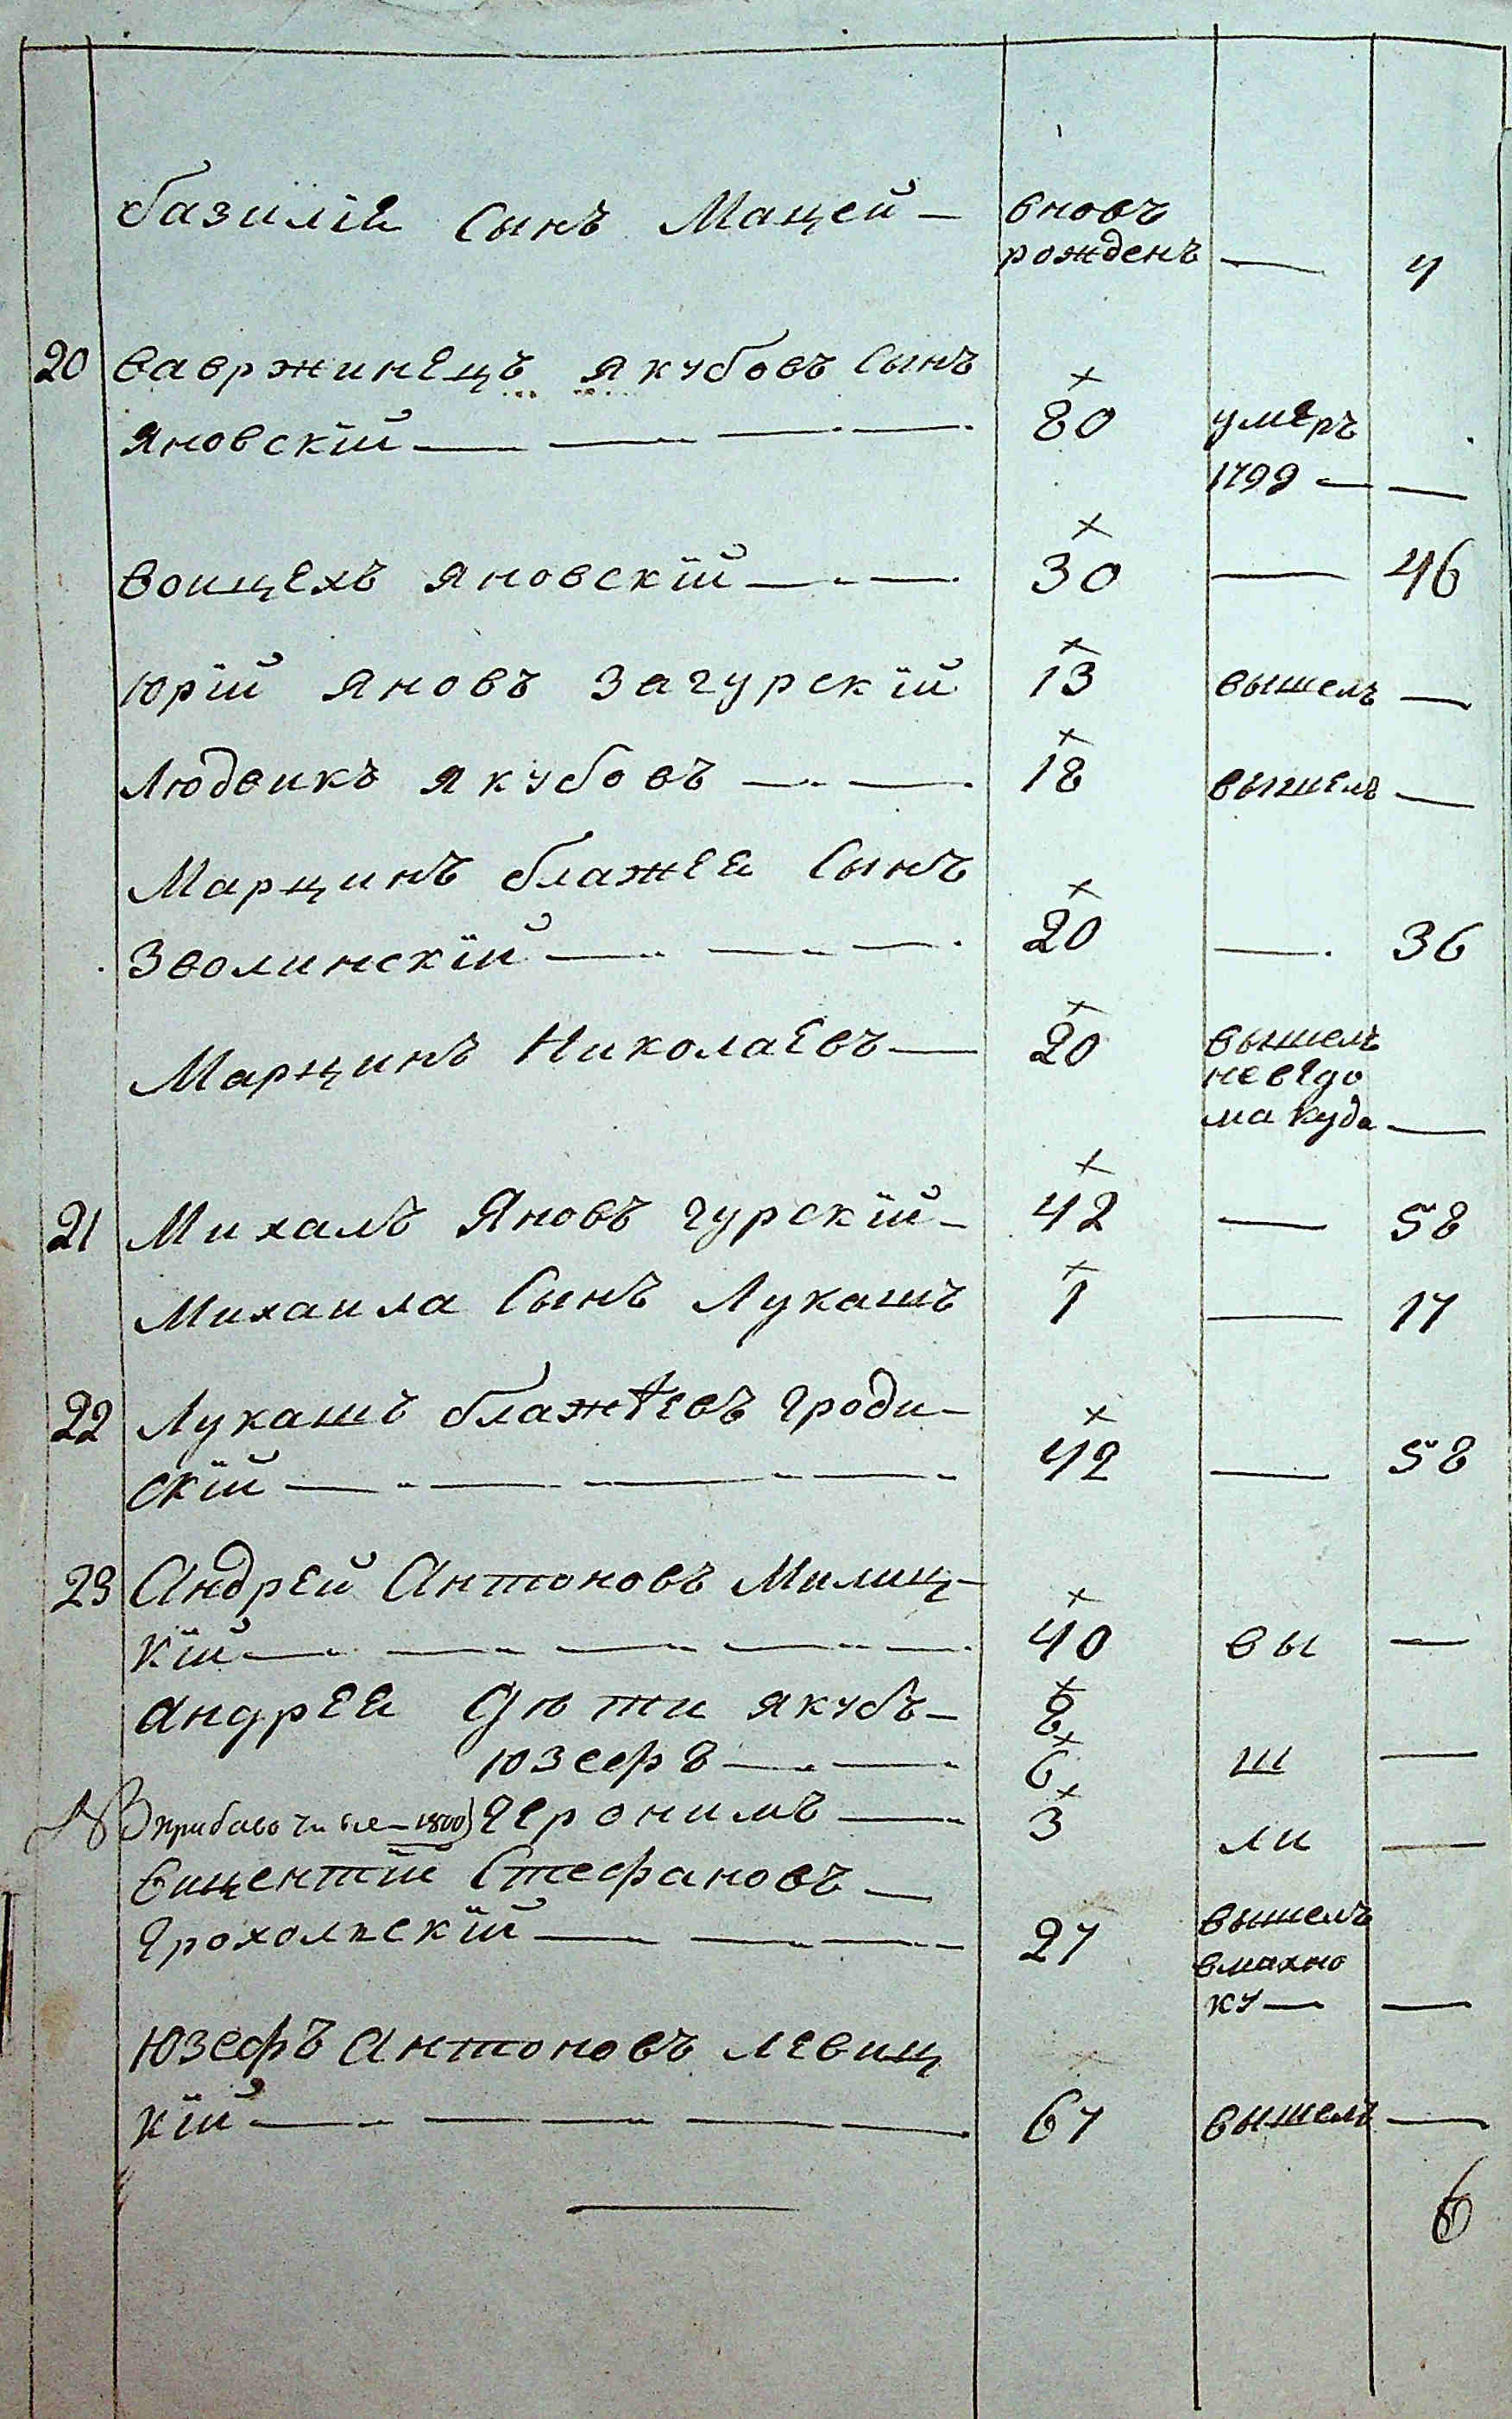 базилiя Сынъ Мацей — вновь
рожденъ — 4
20 Вавржинецъ якубовъ Сынъ
Яновскiй — 80 умеръ
1799 —
Воицехъ яновскiй — 30 — 46
Юрiй яновъ Загурскiй 13 вышелъ —
Людвикъ якубовъ — 18 вышелъ —
Марцинъ блажея Сынъ
Зволинскiй — 20 — 36
Марцинъ Николаевъ — 20 вышелъ
невядо
ма куда —
21 Михалъ Яновъ гурскiй — 42 — 58
Михаила Сынъ Лукашъ 1 — 17
22 Лукашъ блажеевъ Гроди-
скiй — 42 — 58
23 Андрей Антоновъ Милиц-
кiй — 40 вы —
андрея дѣти якубъ — 8
юзефъ — 6 ш —
NB 1800) Героними — 3 ли —
Вицентiй Стефановъ —
Грохольскiй — 27 вышелъ
вмахно
ку — —
Юзефъ антоновъ левиц
кiй — 67 вышелъ —
6